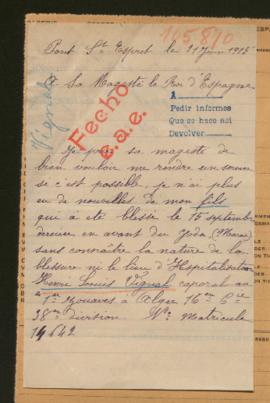 105810
Pont St Esprit le 21 Juin 1915
A Sa Majesté le Roi d'Espagne
Vignal
Fecho
e.a.e.
A
Pedir informes
Que se hace así
Devolver
Je prie sa majesté de
bien vouloir me rendre un service
si c'est possible, je n'ai plus
eu de nouvelles de mon fils
qui a été blessé le 15 septembre
dernier en avant du (Marne)
sans connaître la nature de la
blessure ni le lieu d'Hospitalisation
Henri Louis Vignal caporal au
1er Zouaves à Alger 16me Cie
38me division No Matricule
14642